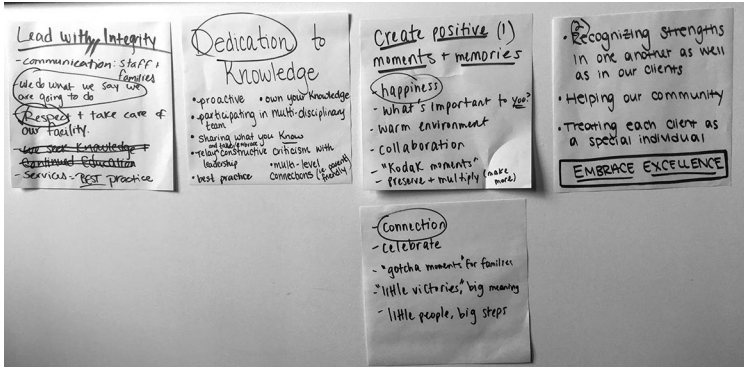 Lead with Integrity
- communication: staff +
families
- We do what we say we
are going to do
Respect + take care of
our facility.
- we seek knowledge +
continued education
- services = BEST practice
Dedication to
Knowledge
• proactive
• own your knowledge
• participating in multi-disciplinary
team
• sharing what you know
and take/embrace
• relay constructive criticism with
leadership
• multi-level
connections (i.e. parent
friendly)
• best practice
Create positive (1)
moments + memories
- happiness
- what's important to you?
- warm environment
- collaboration
- "Kodak moments"
- preserve + multiply (make
more)
(2)
• Recognizing strengths
in one another as well
as in our clients
• Helping our community
• Treating each client as
a special individual
EMBRACE EXCELLENCE
- Connection
- celebrate
- "gotcha moments" for families
- "little victories," big meaning
- little people, big steps